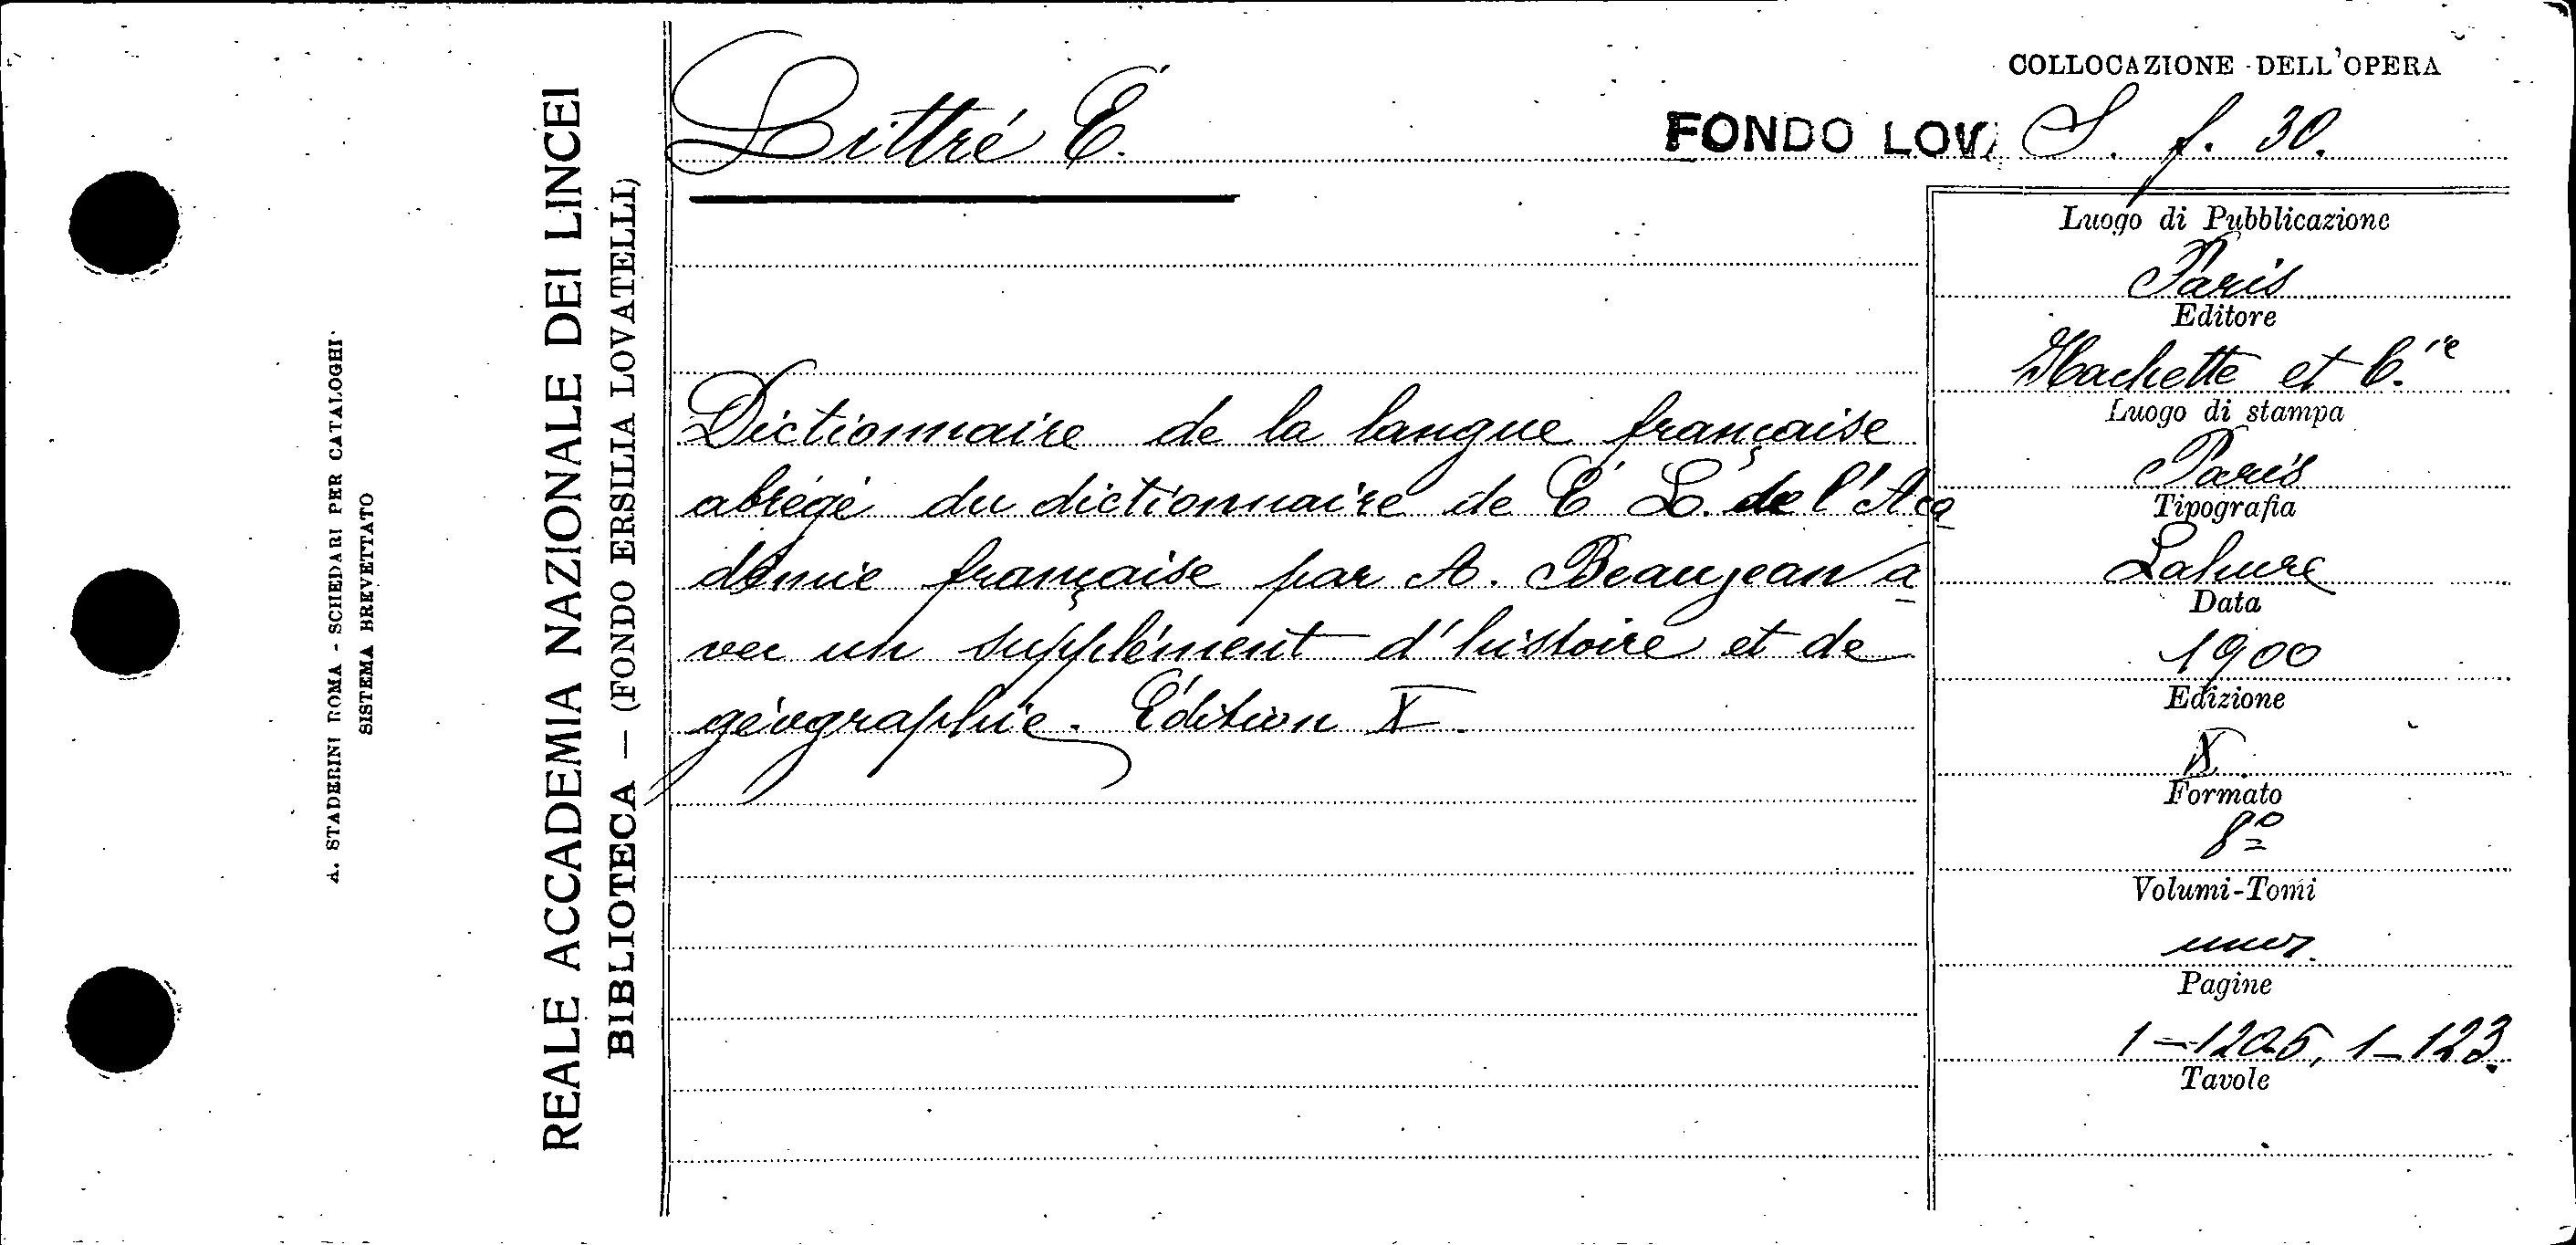 A. STADERINI ROMA - SCHEDARI PER CATALOGHI
SISTEMA BREVETTATO
REALE ACCADEMIA NAZIONALE DEI LINCEI
BIBLIOTECA — (FONDO ERSILIA LOVATELLI)
Littré É.
COLLOCAZIONE DELL'OPERA
FONDO LOV. S. f. 30.
Dictionnaire de la langue française
abrégé du dictionnaire de É L. de l'Aca
démie française par A. Beaujean a
vec un supplément d'histoire et de
géographie. Édition X.
Luogo di Pubblicazione
Paris
Editore
Hachette et C.ie
Luogo di stampa
Paris
Tipografia
Lahure
Data
1900
Edizione
X.
Formato
8º
Volumi-Tomi
uno.
Pagine
1-1205, 1-123.
Tavole